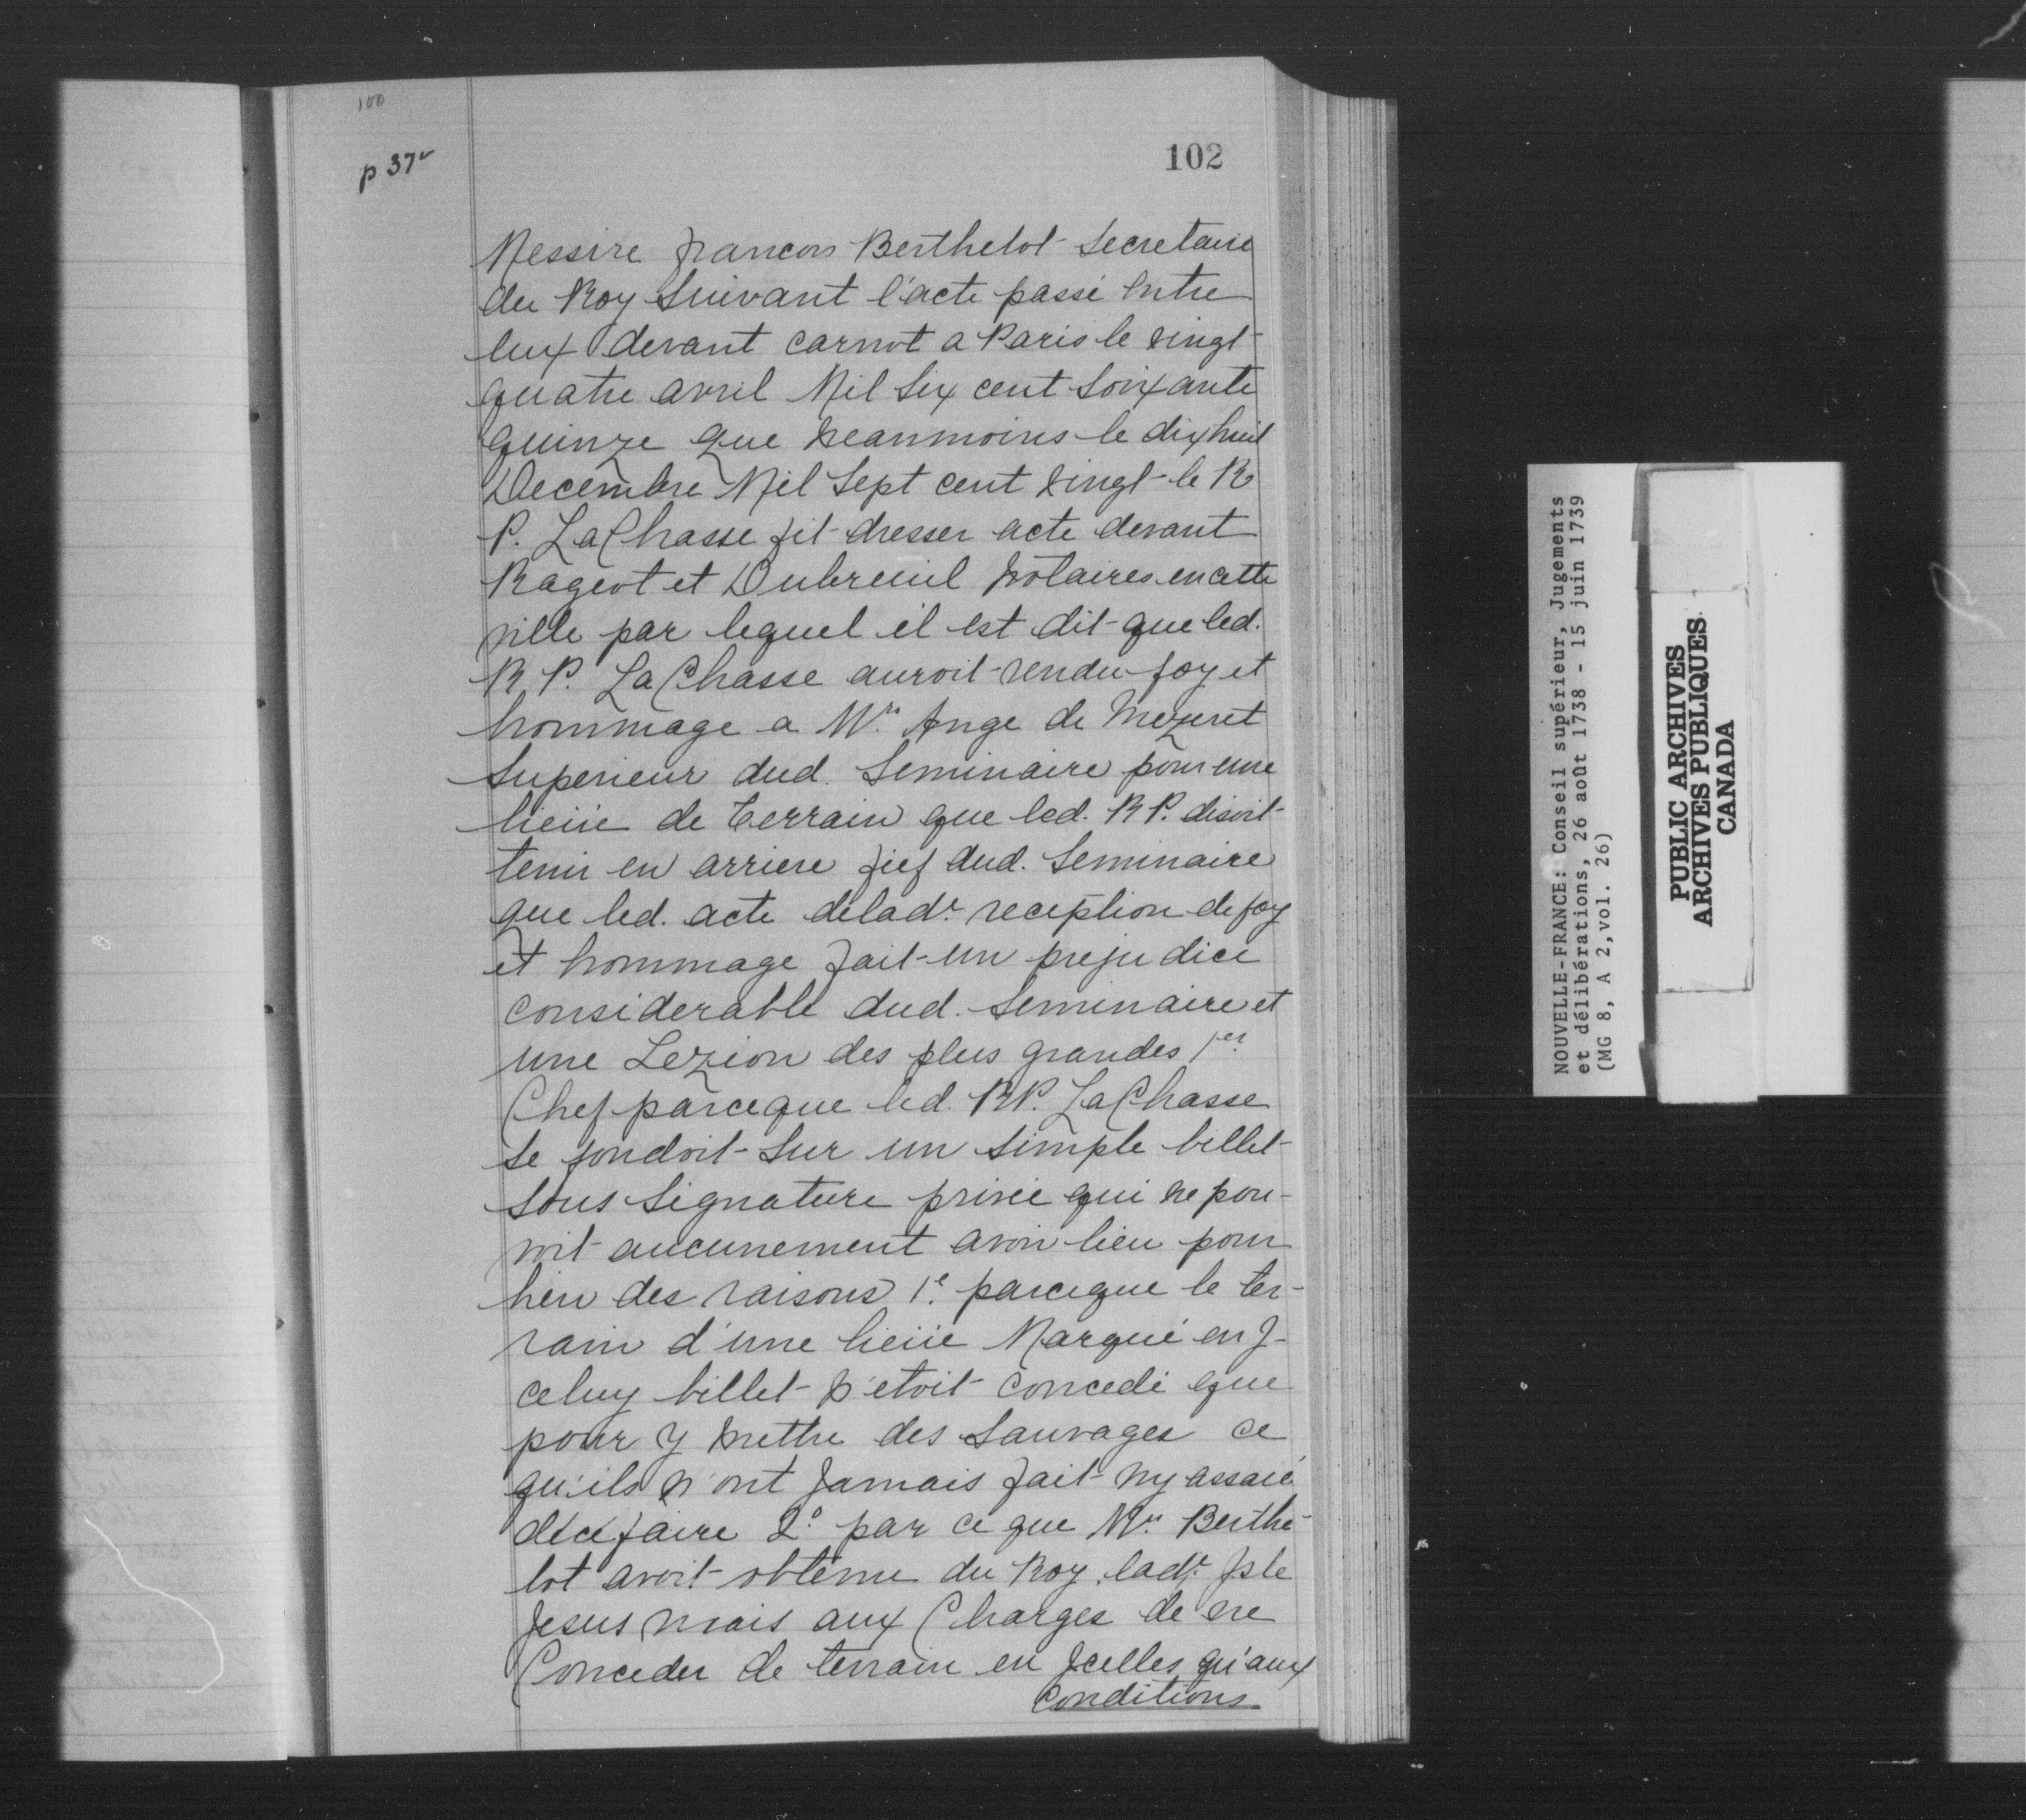 100
p 37v
102
Messire francois Berthelot Secretaire
du Roy Suivant l'acte passé Entre
Eux devant carnot a Paris le vingt
quatre avril Mil Six cent Soixante
quinze que Neanmoins le dixhuit
Decembre Mil Sept cent vingt le R
P. LaChasse fit dresser acte devant
Rageot et Dubreuil Notaires en cette
ville par lequel il est dit que led.
R P. LaChasse auroit rendu foy et
hommage a Mre. Ange de Mezeret
Superieur dud. Seminaire pour une
lieüe de terrain que led. RP. disoit
tenir en arriere fief dud. Seminaire
que led. acte delade. reception de foy
et hommage fait un prejudice
considerable dud. Seminaire et
une Lezion des plus grandes 1er.
Chef parceque led. RP. LaChasse
Se fondoit Sur un Simple billet
Sous Signature privée qui ne pou-
voit aucunement avoir lieu pour
bien des raisons 1e. parceque le ter-
rain d'une lieüe Marqué en J-
celuy billet N'etoit Concedé que
pour y Mettre des Sauvages ce
qu'ils N'ont Jamais fait Ny assaié
dece faire 2o. par ce que Mr. Berthe-
lot avoit obtenu du Roy lade. Jsle
Jesus Mais aux Charges de ne
Conceder de terrain en Jcelles qu'aux
Conditions
NOUVELLE-FRANCE: Conseil supérieur, Jugements
et délibérations, 26 août 1738 - 15 juin 1739
(MG 8, A 2,vol. 26)
PUBLIC ARCHIVES
ARCHIVES PUBLIQUES
CANADA